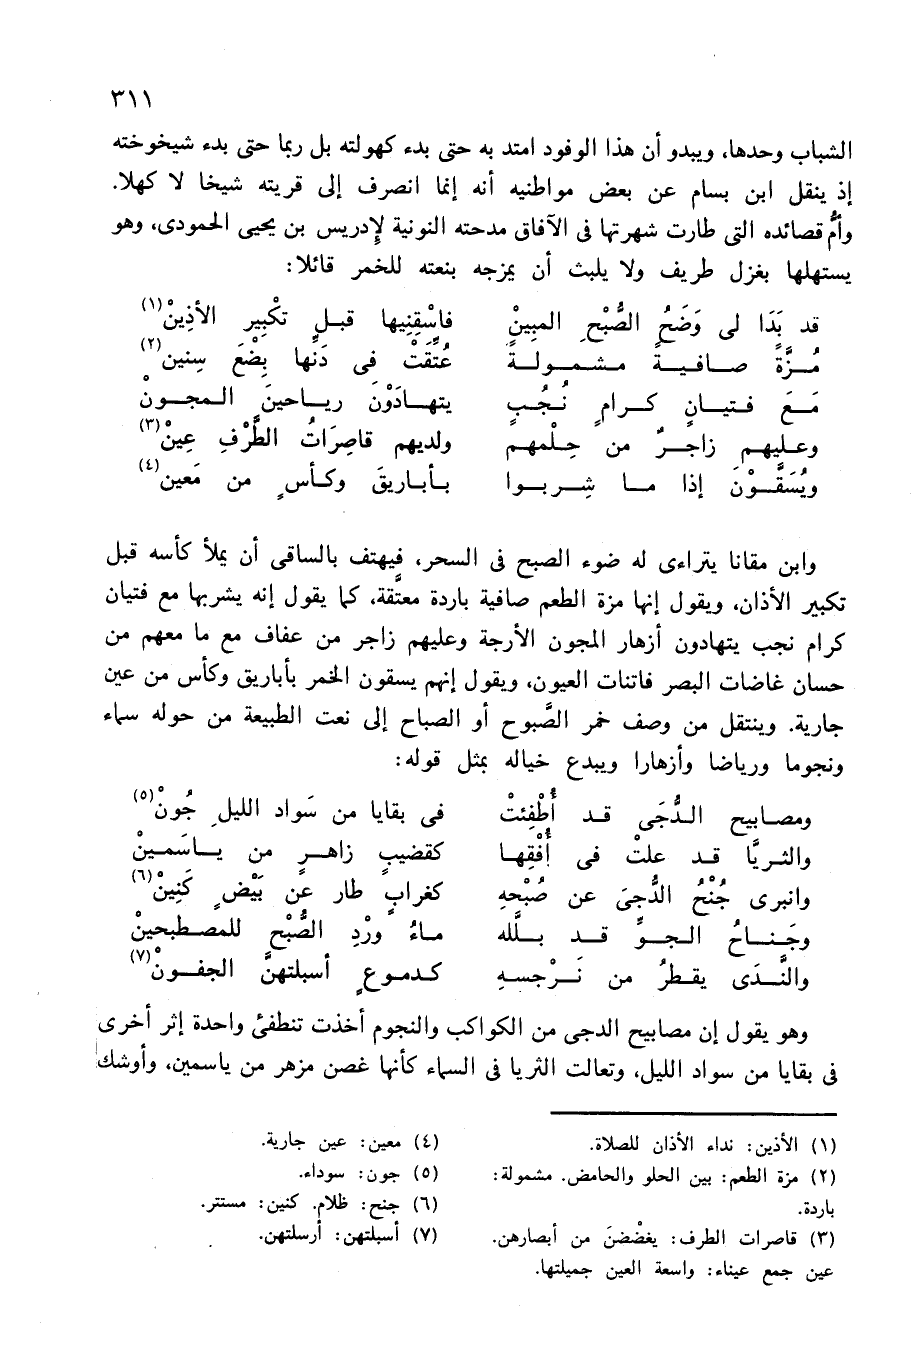 ٣١١
الشباب وحدها، ويبدو أن هذا الوفود امتد به حتى بدء كهولته بل ربما حتى بدء شيخوخته
إذ ينقل ابن بسام عن بعض مواطنيه أنه إنما انصرف إلى قريته شيخا لا كهلا.
وأمُّ قصائده التى طارت شهرتها فى الآفاق مدحته النونية لإدريس بن يحيى الحمودى، وهو
يستهلها بغزل طريف ولا يلبث أن يمزجه بنعته للخمر قائلا:
قد بَدَا لى وَضَحُ الصُّبْحِ المبينْ فاسْقِنِيها قبلِ تكْبِيرِ الأذِينْ(١)
مُزَّةً صافيةً مشمولةً عُتِّقَتْ فى دَنِّها بِضْعَ سِنينْ(٢)
مَعَ فتيانٍ كرامٍ نُجُبٍ يتهادَوْنَ رياحينَ المجونْ
وعليهم زاجرٌ من حِلْمهم ولديهم قاصِرَاتُ الطَّرْفِ عِينْ(٣)
ويُسَقَّوْنَ إذا ما شِربوا بأباريقَ وكأسٍ من مَعينْ(٤)
وابن مقانا يتراءى له ضوء الصبح فى السحر، فيهتف بالساقى أن يملأ كأسه قبل
تكبير الأذان، ويقول إنها مزة الطعم صافية باردة معتَّقة، كما يقول إنه يشربها مع فتيان
كرام نجب يتهادون أزهار المجون الأرجة وعليهم زاجر من عفاف مع ما معهم من
حسان غاضات البصر فاتنات العيون، ويقول إنهم يسقون الخمر بأباريق وكأس من عين
جارية. وينتقل من وصف خمر الصَّبوح أو الصباح إلى نعت الطبيعة من حوله سماء
ونجوما ورياضا وأزهارا ويبدع خياله بمثل قوله:
ومصابيح الدُّجَى قد أُطْفِئتْ فى بقايا من سَواد الليلِ جُونْ(٥)
والثريَّا قد علتْ فى أُفْقِها كقضيبٍ زاهرٍ من ياسَمينْ
وانبرى جُنْحُ الدُّجىَ عن صُبْحِهِ كغرابٍ طار عن بَيْضٍ كَنِينْ(٦)
وجَناحُ الجوِّ قد بلَّله ماءُ ورْدِ الصُّبْحِ للمصطبحينْ
والنَّدَى يقطرُ من نَرْجسهِ كدموعٍ أسبلتهنَّ الجفونْ(٧)
وهو يقول إن مصابيح الدجى من الكواكب والنجوم أخذت تنطفئ واحدة إثر أخرى
فى بقايا من سواد الليل، وتعالت الثريا فى السماء كأنها غصن مزهر من ياسمين، وأوشك
(١) الأذين: نداء الأذان للصلاة.
(٢) مزة الطعم: بين الحلو والحامض. مشمولة:
باردة.
(٣) قاصرات الطرف: يغضْضنَ من أبصارهن.
عين جمع عيناء: واسعة العين جميلتها.
(٤) معين: عين جارية.
(٥) جون: سوداء.
(٦) جنح: ظلام. كنين: مستتر.
(٧) أسبلتهن: أرسلتهن.